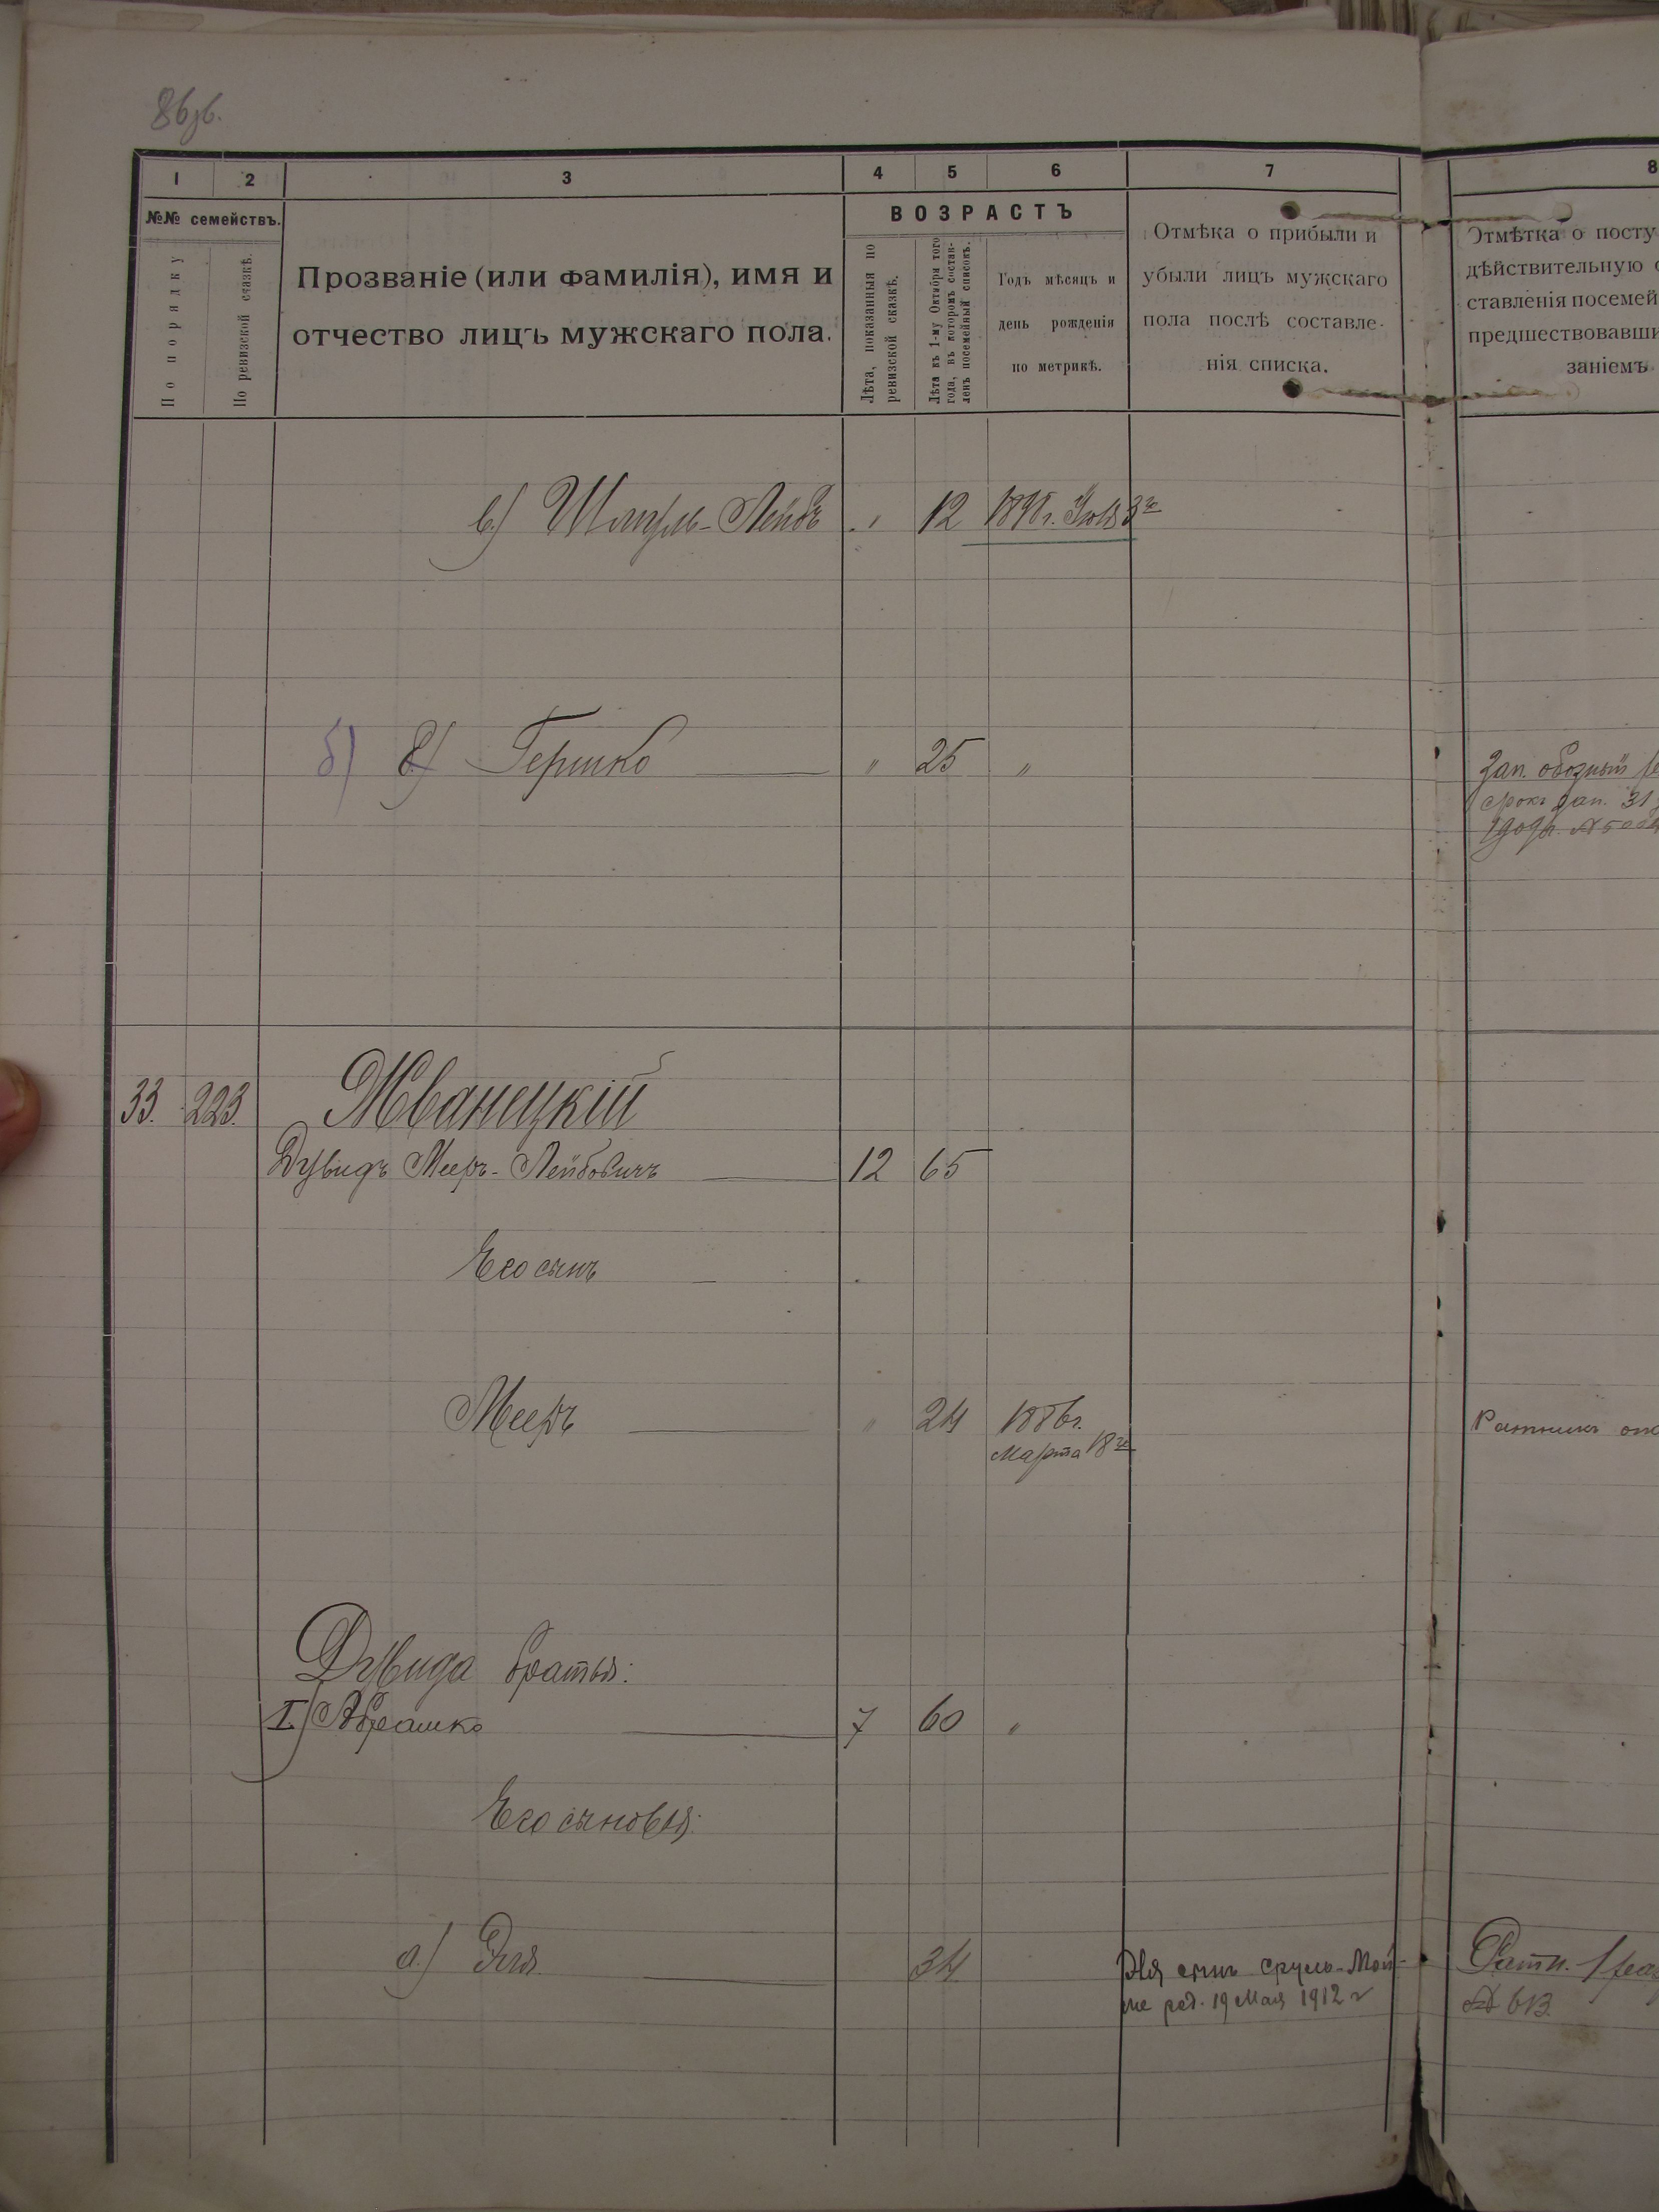 86об.
1 2 3 4 5 6 7 8
№№ семействъ.
По порядку
По ревизской сказкѣ.
Прозваніе (или фамилія), имя и
отчество лицъ мужскаго пола.
ВОЗРАСТЪ
Лѣта, показанныя по
ревизской сказкѣ.
Лѣта къ 1-му Октября того
года, въ которомъ состав-
ленъ посемейный списокъ.
Годъ мѣсяцъ и
день рожденія
по метрикѣ.
Отмѣка о прибыли и
убыли лицъ мужскаго
пола послѣ составле-
нія списка.
Отмѣтка о посту
дѣйствительную с
ставленія посемей
предшествовавши
заніемъ
в) Шмуль-Лейбъ " 12 1898г. 3го
б) Гершко " 25 "
Зап. обозный
срокъ зап. 31
1909г. №
33. 223. Жванецкій
Дувидъ Мееръ-Лейбовичъ 12 65
Его сынъ
Мееръ " 24 1886г.
Марта 18го
Ратникъ опо
Дувида братья:
I) Абрашко 7 60 "
Его сыновья:
а) Эля 34
Эля сынъ Сруль-Мой-
ше род. 19 Мая 1912 г
Ратн. 1 раз
№ 613.